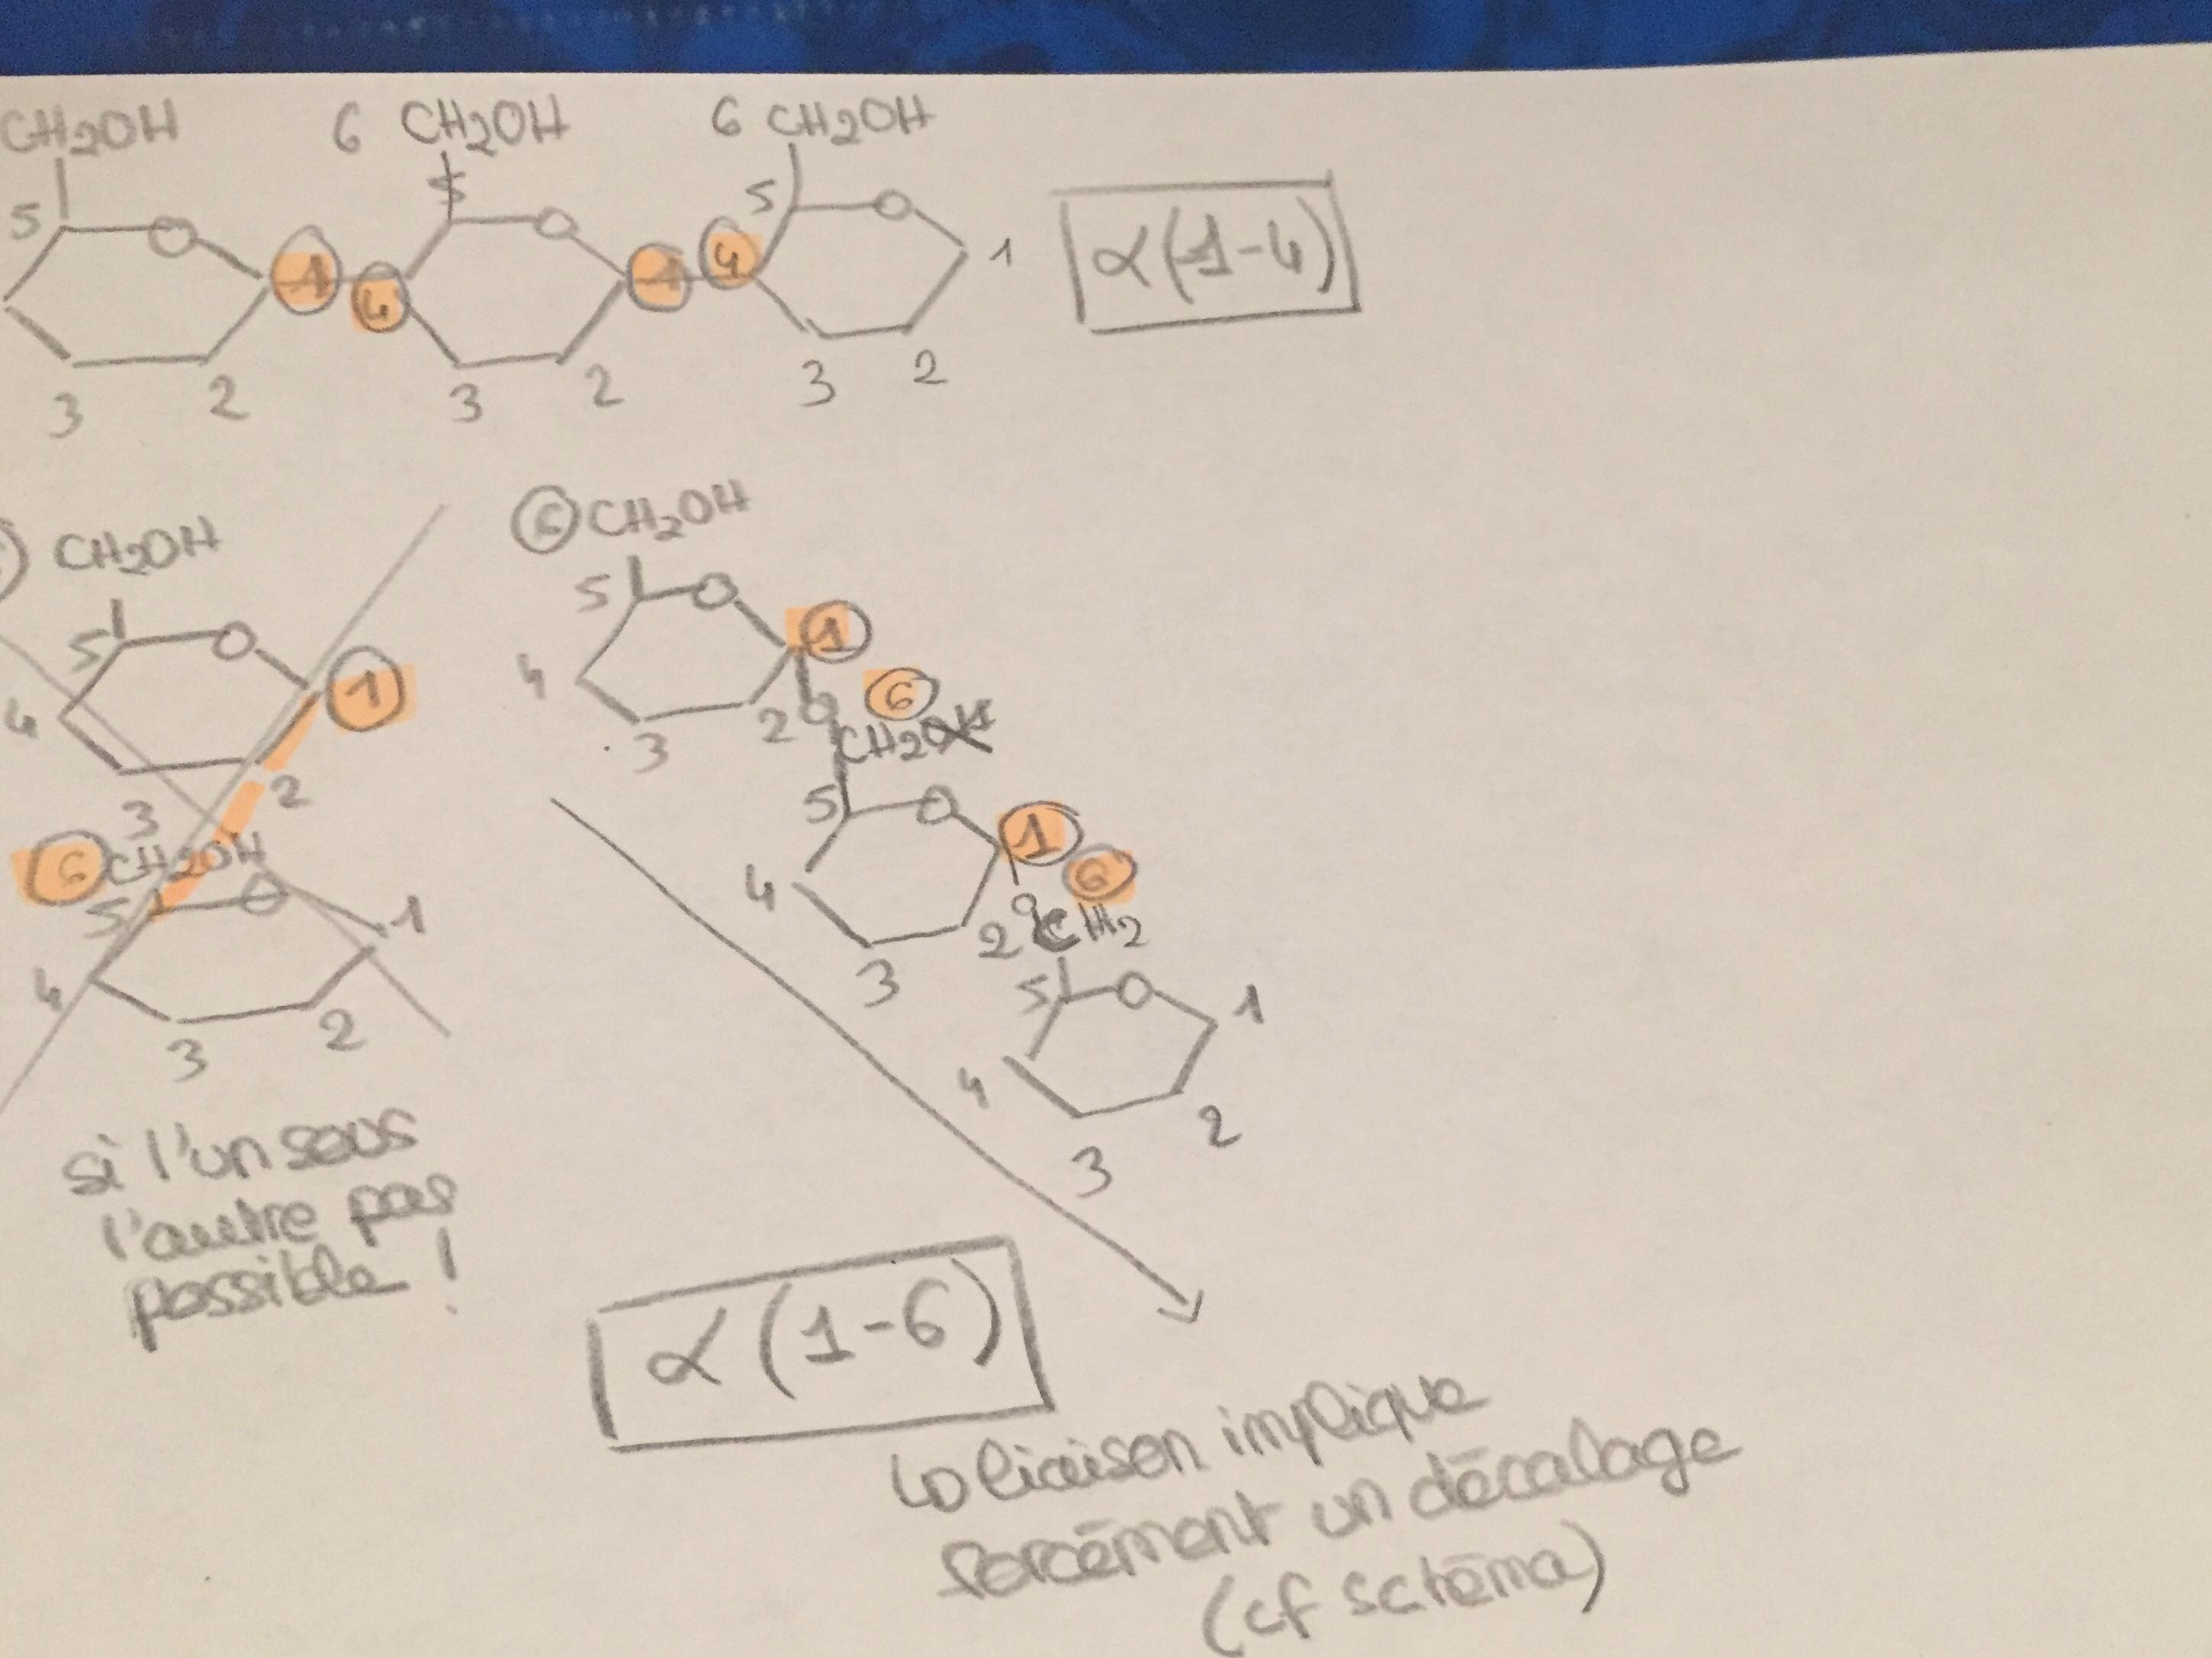 CH2OH 6 CH2OH 6 CH2OH
5 O 5 O 5 O
1 4 1 4 1
α(1-4)
3 2 3 2 3 2
CH2OH
5 O
1
4
3 2
6 CH2OH
5 O
1
4
3 2
si l'un sous
l'autre pas
possible !
6 CH2OH
5 O
1
4
3 2
O 6
CH2OH
5 O
1
4
3 2
O 6
CH2
5 O
1
4
3 2
α(1-6)
↳ liaison implique
forcément un décalage
(cf schéma)